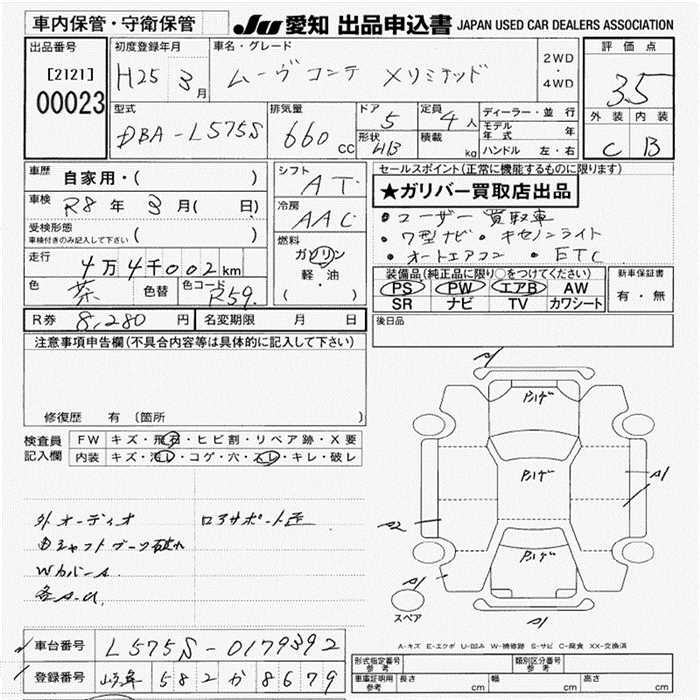 車内保管・守衛保管
JU 愛知 出品申込書 JAPAN USED CAR DEALERS ASSOCIATION
出品番号
[2121]
00023
初度登録年月
H25 3月
車名・グレード
ムーヴ コンテ Xリミテッド
2WD
・
4WD
評価点
3.5
外装 内装
C B
型式
DBA-L575S
排気量
660 CC
ドア 5
形状 HB
定員 4人
積載 kg
ディーラー・並行
モデル年式 年
ハンドル 左・右
車歴 自家用・( )
車検 R8年 3月( 日)
受検形態 ( )
車検付きのみ記入して下さい
走行 4万4千002km
色 茶 色替 色コード R59
シフト AT
冷房 AAC
燃料
ガソリン
軽・油
( )
セールスポイント(正常に機能するものに限ります)
★ガリバー買取店出品
・ユーザー買取車
・ワ型ナビ・キセノンライト
・オートエアコン・ETC
装備品(純正品に限り○をつけてください)
PS PW エアB AW
SR ナビ TV カワシート
新車保証書
有・無
R券 8,280円 名変期限 月 日
後日品
注意事項申告欄(不具合内容等は具体的に記入して下さい)
修復歴 有 〔箇所 〕
検査員記入欄
FW キズ・飛石・ヒビ割・リペア跡・X要
内装 キズ・汚レ・コゲ・穴・スレ・キレ・破レ
外オーディオ
ロアサポート正
シャフトブーツ破れ
WカバーA
各A.U
A1
Pハゲ
Pハゲ
A1
A2
Pハゲ
A1
A1
スペア
A-キズ E-エクボ U-凹み W-補修跡 S-サビ C-腐食 XX-交換済
車台番号 L575S-0179392
登録番号 582 か 8679
形式指定番号 参考
類別区分番号 参考
車庫証明用 参考
長さ cm 幅 cm 高さ cm